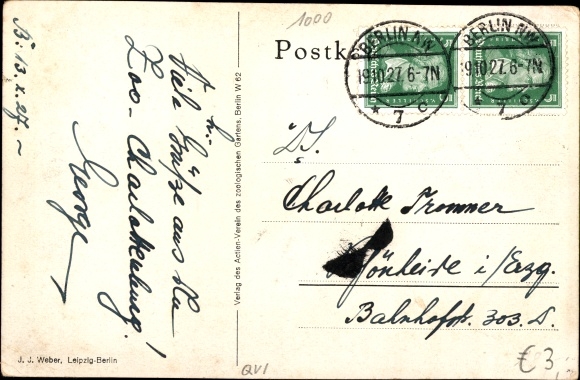 1000
Postk
BERLIN NW
19.10.27. 6-7N
* 7 c
BERLIN NW
19.10.27. 6-7N
* 7 c
B. 13.X.27. ~
Viele Grüße aus
Zoo-Charlottenburg!
George
Verlag des Actien-Verein des zoologischen Gartens, Berlin W 62
J. J. Weber, Leipzig-Berlin
Charlotte Trommer
Schönheide i/Erzg.
Bahnhofstr. 303. D.
QVI
€ 3,